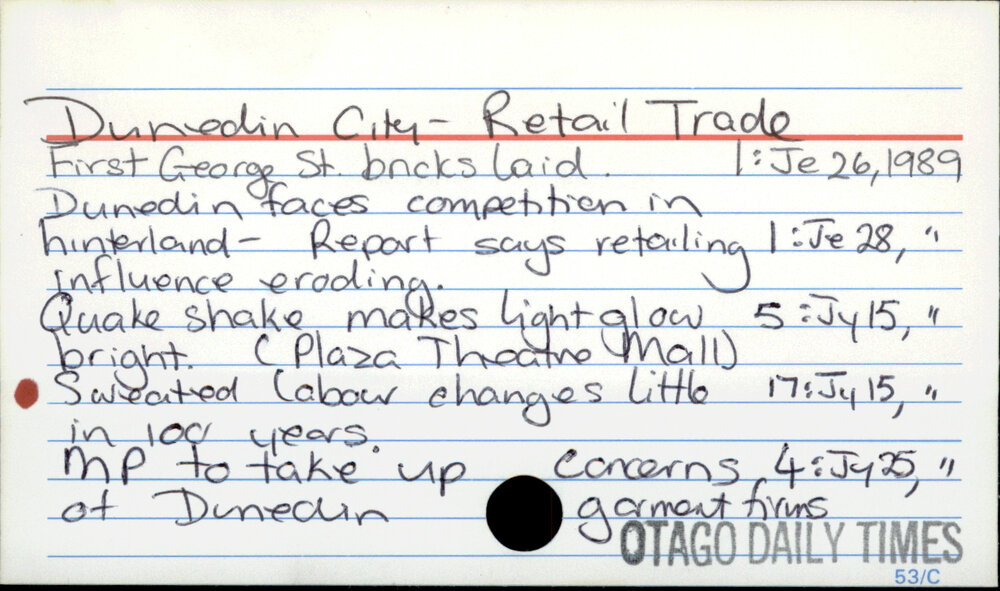 Dunedin City - Retail Trade
First George St. bricks laid. 1:Je 26, 1989
Dunedin faces competition in
hinterland - Report says retailing 1:Je 28, "
influence eroding.
Quake shake makes light glow 5:Jy 15, "
bright. (Plaza Theatre Mall)
Sweated labour changes little 17:Jy 15, "
in 100 years.
MP to take up concerns 4:Jy 25, "
of Dunedin garment firms
OTAGO DAILY TIMES
53/C